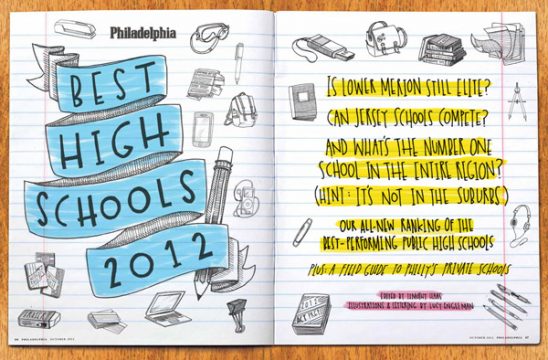 Philadelphia
BEST
HIGH
SCHOOLS
2012
IS LOWER MERION STILL ELITE?
CAN JERSEY SCHOOLS COMPETE?
AND WHAT'S THE NUMBER ONE
SCHOOL IN THE ENTIRE REGION?
(HINT: IT'S NOT IN THE SUBURBS)
OUR ALL-NEW RANKING OF THE
BEST-PERFORMING PUBLIC HIGH SCHOOLS
PLUS: A FIELD GUIDE TO PHILLY'S PRIVATE SCHOOLS
EDITED BY TIMOTHY
ILLUSTRATIONS & LETTERING BY LUCY ENGELMAN
PHILADELPHIA OCTOBER 2012
OCTOBER 2012 PHILADELPHIA 67